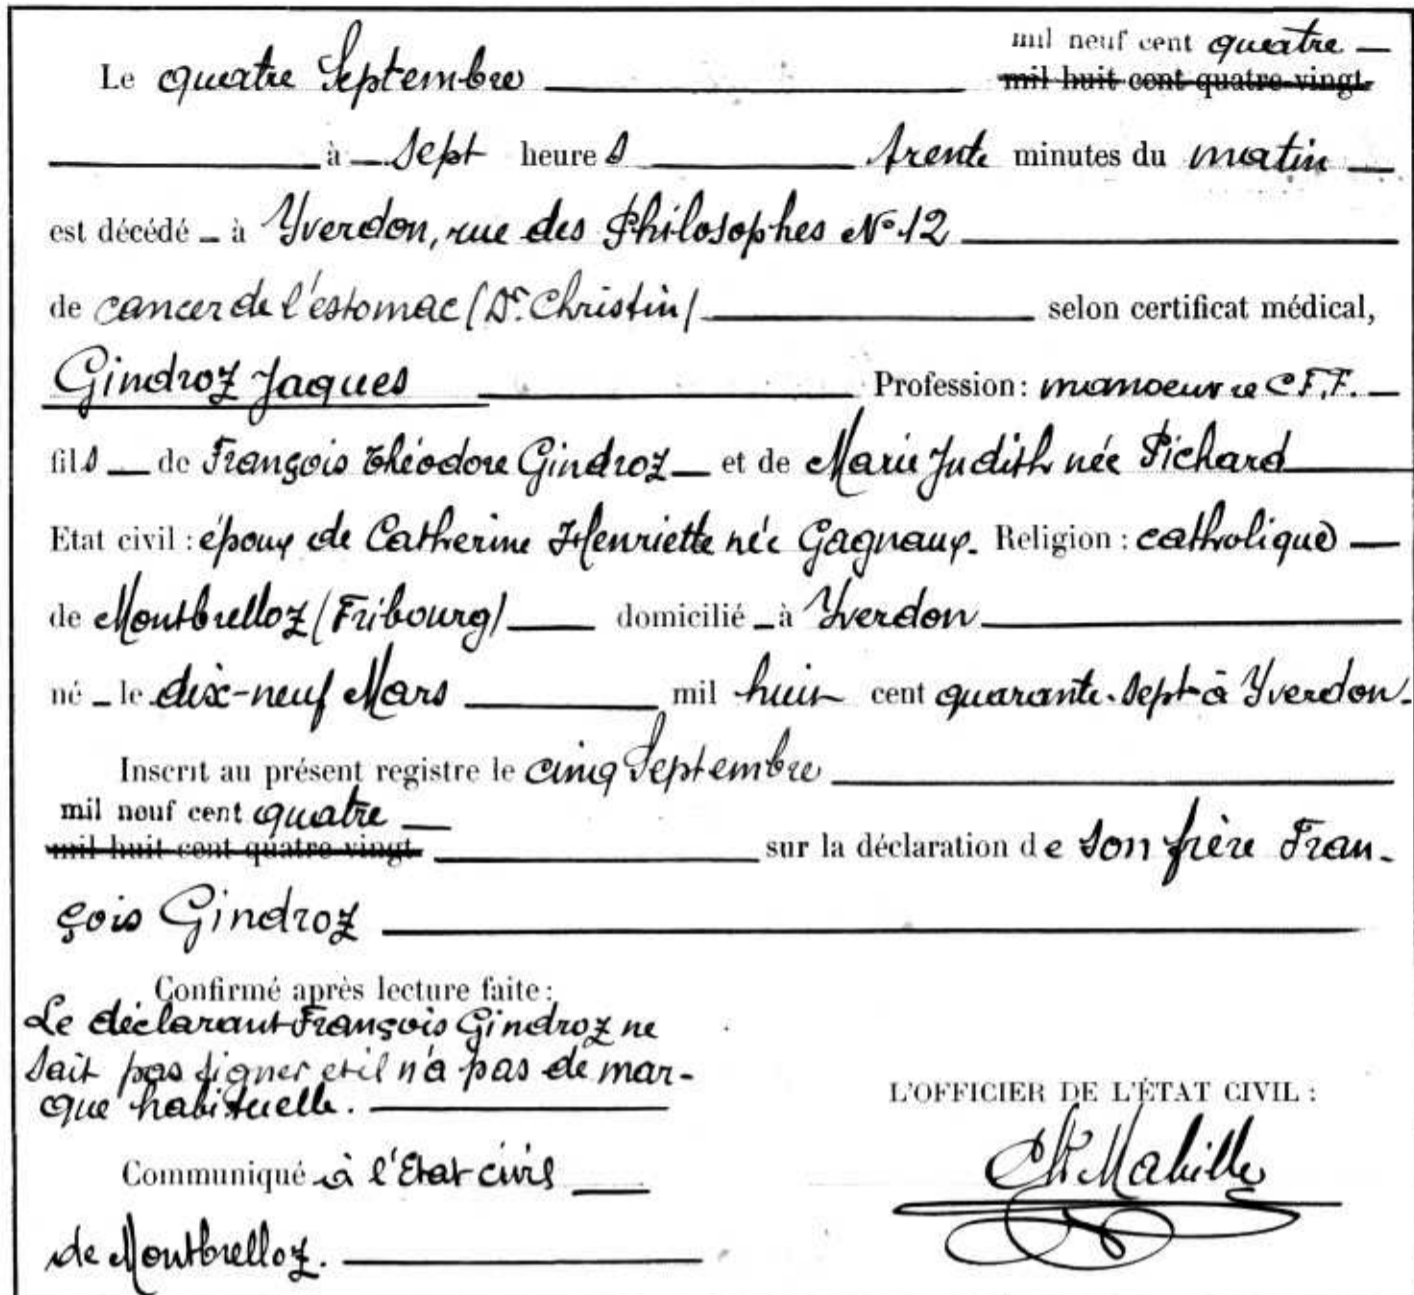 mil neuf cent quatre
Le quatre Septembre mil huit cent quatre-vingt
à sept heures trente minutes du matin
est décédé à Yverdon, rue des Philosophes No 12
de cancer de l'estomac (Dr. Christin) selon certificat médical,
Gindroz Jaques Profession: manoeuvre C.F.F.
fils de François Théodore Gindroz et de Marie Judith née Pichard
Etat civil : époux de Catherine Henriette née Gagnaux. Religion : catholique
de Montbrelloz (Fribourg) domicilié à Yverdon
né le dix-neuf Mars mil huit cent quarante-sept à Yverdon.
Inscrit au présent registre le cinq Septembre
mil neuf cent quatre
mil huit cent quatre-vingt sur la déclaration de son frère Fran-
çois Gindroz
Confirmé après lecture faite :
Le déclarant François Gindroz ne
sait pas signer et il n'a pas de mar-
que habituelle.
L'OFFICIER DE L'ÉTAT CIVIL :
Communiqué à l'Etat civil
Mabille
de Montbrelloz.